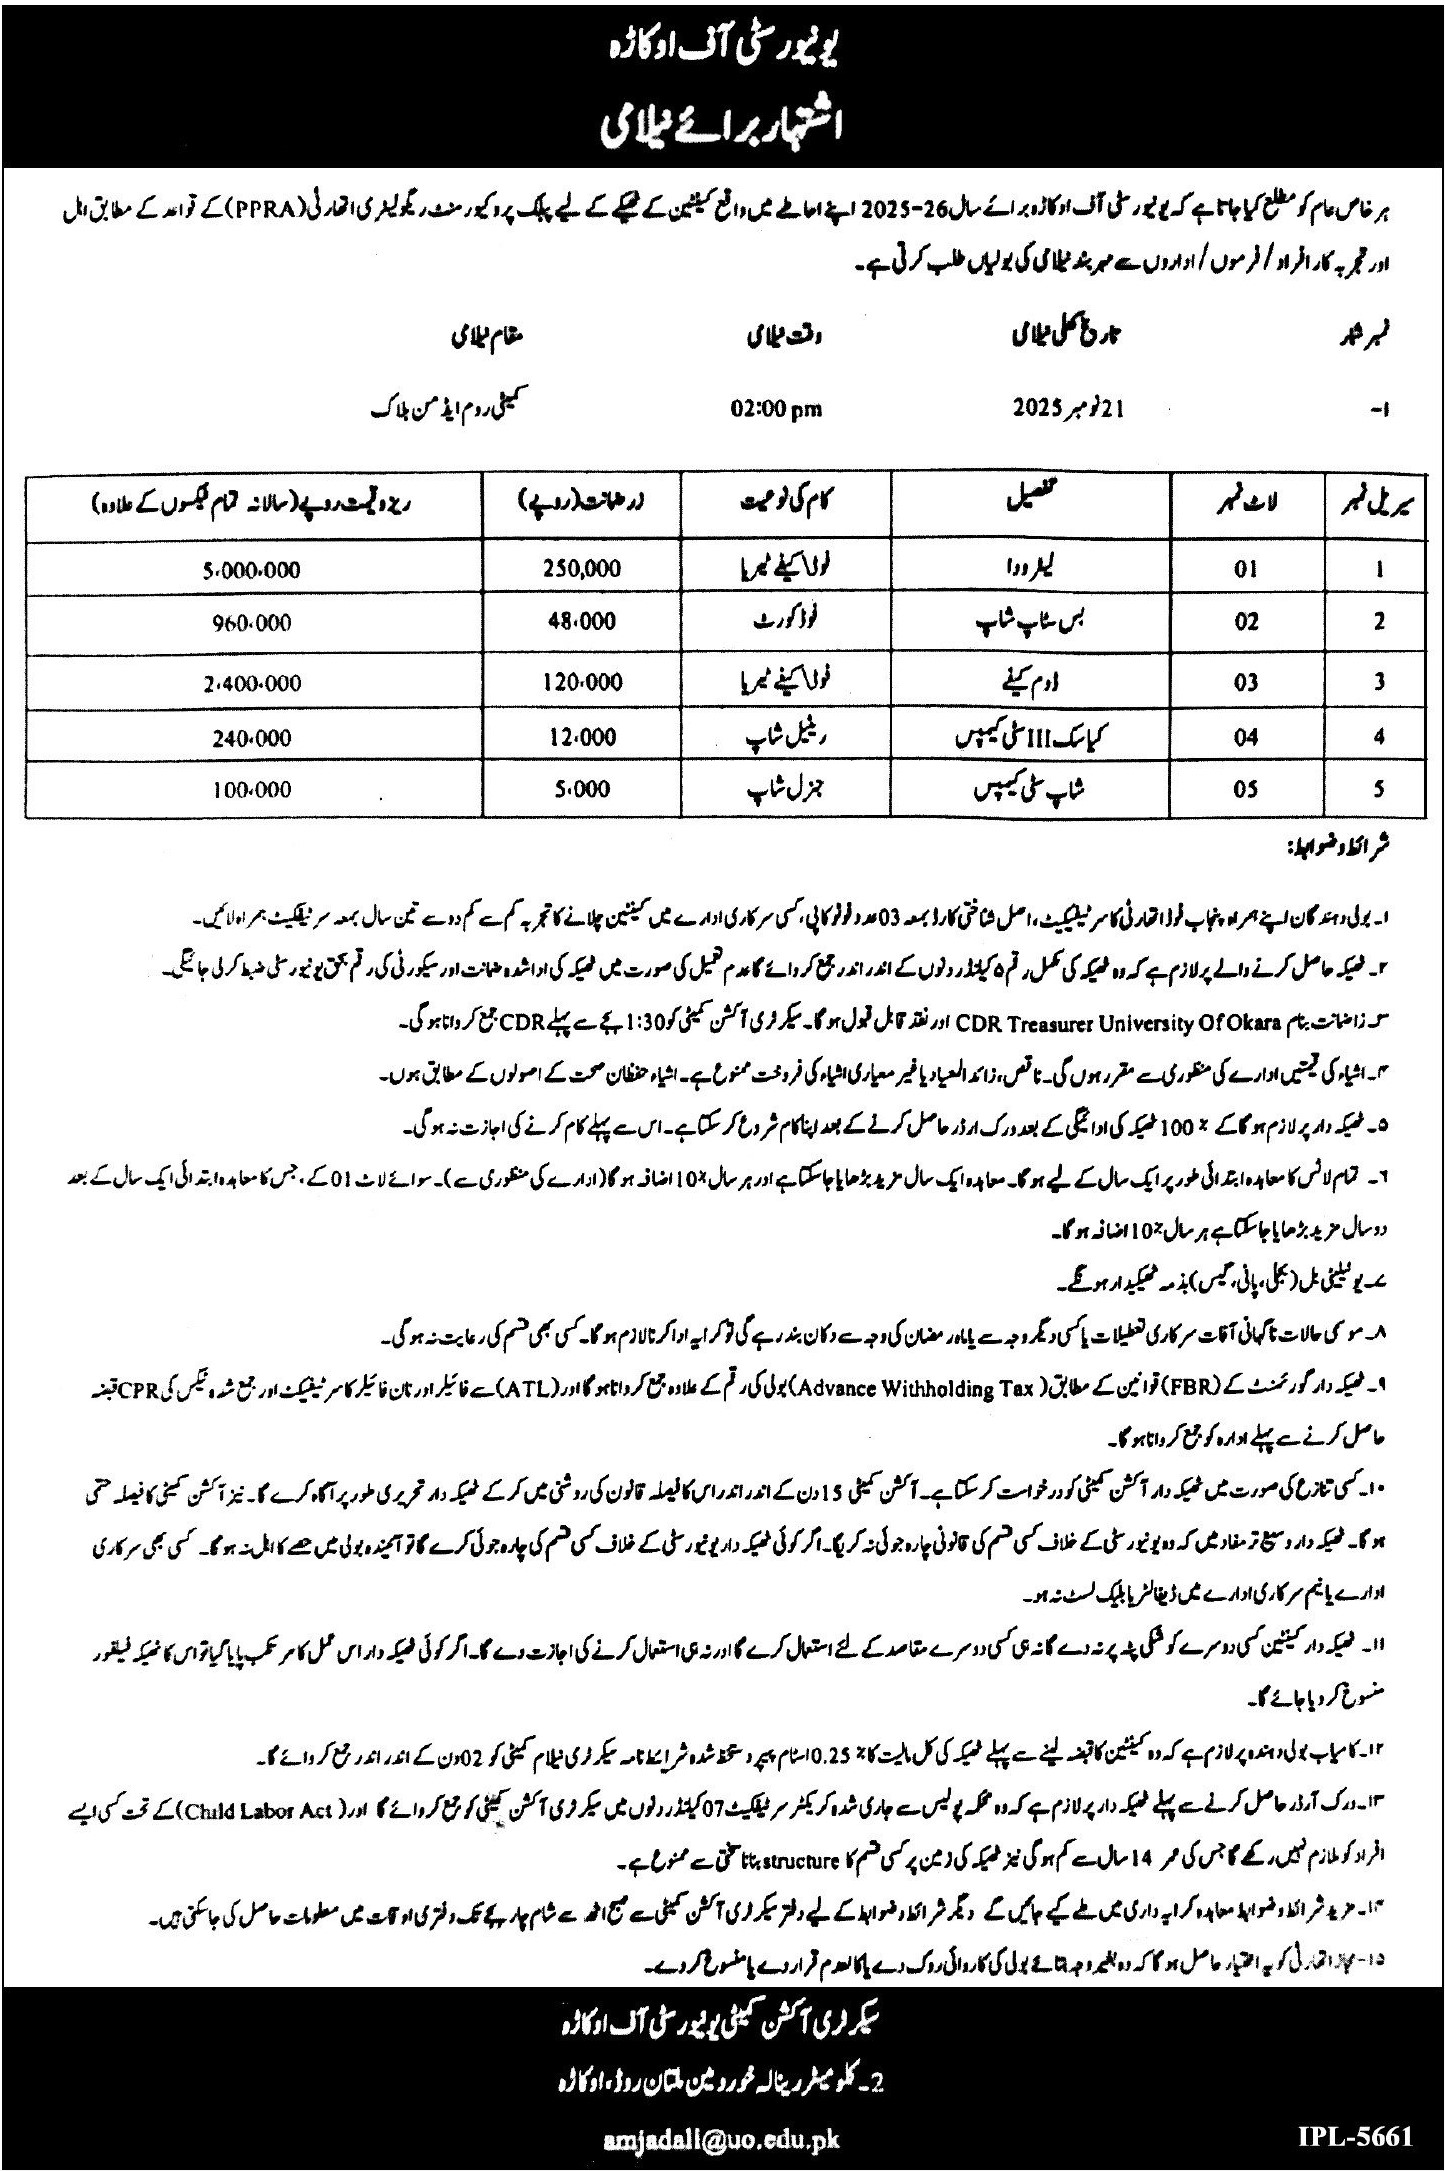 یونیورسٹی آف اوکاڑہ
اشتہار برائے نیلامی
ہر خاص عام کو مطلع کیا جاتا ہے کہ یونیورسٹی آف اوکاڑہ برائے سال 26-2025 اپنے احاطے میں واقع کینٹین کے ٹھیکے کے لیے پبلک پروکیورمنٹ ریگولیٹری اتھارٹی (PPRA) کے قواعد کے مطابق اہل
اور تجربہ کار افراد/فرموں/اداروں سے مہر بند نیلامی کی بولیاں طلب کرتی ہے۔
نمبر شمار تاریخ کھلی نیلامی وقت نیلامی مقام نیلامی
۱- 21 نومبر 2025 02:00 pm کمیٹی روم ایڈمن بلاک
سیریل نمبر لاٹ نمبر تفصیل کام کی نوعیت زر ضمانت (روپے) ریزرو قیمت روپے (سالانہ تمام ٹیکسوں کے علاوہ)
1 01 فوڈ/کیفے ٹیریا 250,000 5،000،000
2 02 بس سٹاپ شاپ فوڈ کورٹ 48،000 960،000
3 03 ڈوم کیفے فوڈ/کیفے ٹیریا 120،000 2،400،000
4 04 کیاسک III سٹی کیمپس ریٹیل شاپ 12،000 240،000
5 05 شاپ سٹی کیمپس جنرل شاپ 5،000 100،000
شرائط و ضوابط:
۱۔ بولی دہندگان اپنے ہمراہ پنجاب فوڈ اتھارٹی کا سرٹیفکیٹ، اصل شناختی کارڈ بمعہ 03 عدد فوٹو کاپی، کسی سرکاری ادارے میں کینٹین چلانے کا تجربہ کم سے کم دو سے تین سال بمعہ سرٹیفکیٹ ہمراہ لائیں۔
۲۔ ٹھیکہ حاصل کرنے والے پر لازم ہے کہ وہ ٹھیکہ کی مکمل رقم ۵ کیلنڈر دنوں کے اندر اندر جمع کروائے گا عدم تعمیل کی صورت میں ٹھیکہ کی ادا شدہ ضمانت اور سیکورٹی کی رقم بحق یونیورسٹی ضبط کر لی جائیگی۔
۳۔ زرضمانت بنام CDR Treasurer University Of Okara اور نقد قابل قبول ہوگا۔ سیکرٹری آکشن کمیٹی کو 1:30 بجے سے پہلے CDR جمع کروانا ہوگی۔
۴۔ اشیاء کی قیمتیں ادارے کی منظوری سے مقرر ہوں گی۔ ناقص، زائد المعیاد یا غیر معیاری اشیاء کی فروخت ممنوع ہے۔ اشیاء حفظان صحت کے اصولوں کے مطابق ہوں۔
۵۔ ٹھیکہ دار پر لازم ہوگا کے 100% ٹھیکہ کی ادائیگی کے بعد ورک ارڈر حاصل کرنے کے بعد اپنا کام شروع کر سکتا ہے۔ اس سے پہلے کام کرنے کی اجازت نہ ہوگی۔
۶۔ تمام لاٹس کا معاہدہ ابتدائی طور پر ایک سال کے لیے ہوگا۔ معاہدہ ایک سال مزید بڑھایا جا سکتا ہے اور ہر سال 10% اضافہ ہوگا (ادارے کی منظوری سے)۔ سوائے لاٹ 01 کے، جس کا معاہدہ ابتدائی ایک سال کے بعد
دو سال مزید بڑھایا جا سکتا ہے ہر سال 10% اضافہ ہوگا۔
۷۔ یوٹیلیٹی بل (بجلی، پانی، گیس) بذمہ ٹھیکیدار ہونگے۔
۸۔ موسمی حالات ناگہانی آفات سرکاری تعطیلات یا کسی دیگر وجہ سے یا ماہ رمضان کی وجہ سے دکان بند رہے گی تو کرایہ ادا کرنا لازم ہوگا۔ کسی بھی قسم کی رعایت نہ ہوگی۔
۹۔ ٹھیکہ دار گورنمنٹ کے (FBR) قوانین کے مطابق (Advance Withholding Tax) بولی کی رقم کے علاوہ جمع کروانا ہوگا اور (ATL) سے فائیلر اور نان فائیلر کا سرٹیفکیٹ اور جمع شدہ ٹیکس کی CPR قبضہ
حاصل کرنے سے پہلے ادارہ کو جمع کروانا ہوگا۔
۱۰۔ کسی تنازع کی صورت میں ٹھیکہ دار آکشن کمیٹی کو درخواست کر سکتا ہے۔ آکشن کمیٹی 15 دن کے اندر اندر اس کا فیصلہ قانون کی روشنی میں کر کے ٹھیکہ دار تحریری طور پر آگاہ کرے گا۔ نیز آکشن کمیٹی کا فیصلہ حتمی
ہوگا۔ ٹھیکہ دار وسیع تر مفاد میں کہ وہ یونیورسٹی کے خلاف کسی قسم کی قانونی چارہ جوئی نہ کریگا۔ اگر کوئی ٹھیکہ دار یونیورسٹی کے خلاف کسی قسم کی چارہ جوئی کرے گا تو آئیندہ بولی میں حصے کا اہل نہ ہوگا۔ کسی بھی سرکاری
ادارے یا نیم سرکاری ادارے میں ڈیفالٹر یا بلیک لسٹ نہ ہو۔
۱۱۔ ٹھیکہ دار کینٹین کسی دوسرے کو شکمی پٹہ پر نہ دے گا نہ ہی کسی دوسرے مقاصد کے لئے استعمال کرے گا اور نہ ہی استعمال کرنے کی اجازت دے گا۔ اگر کوئی ٹھیکہ دار اس عمل کا مرتکب پایا گیا تو اس کا ٹھیکہ فیلفور
منسوخ کر دیا جائے گا۔
۱۲۔ کامیاب بولی دہندہ پر لازم ہے کہ وہ کینٹین کا قبضہ لینے سے پہلے ٹھیکہ کی کل مالیت کا 0.25% اسٹام پیپر و دستخط شدہ شرائط نامہ سیکرٹری نیلام کمیٹی کو 02 دن کے اندر اندر جمع کروائے گا۔
۱۳۔ ورک آرڈر حاصل کرنے سے پہلے ٹھیکہ دار پر لازم ہے کہ وہ محکمہ پولیس سے جاری شدہ کریکٹر سرٹیفکیٹ 07 کیلنڈر دنوں میں سیکرٹری آکشن کمیٹی کو جمع کروائے گا اور (Child Labor Act) کے تحت کسی ایسے
افراد کو ملازم نہیں رکھے گا جس کی عمر 14 سال سے کم ہوگی نیز ٹھیکہ کی زمین پر کسی قسم کا structure بنانا سختی سے ممنوع ہے۔
۱۴۔ مزید شرائط و ضوابط معاہدہ کرایہ داری میں طے کیے جائیں گے دیگر شرائط و ضوابط کے لیے دفتر سیکرٹری آکشن کمیٹی سے صبح اٹھ سے شام چار بجے تک دفتری اوقات میں معلومات حاصل کی جا سکتی ہیں۔
۱۵۔ مجاز اتھارٹی کو یہ اختیار حاصل ہوگا کہ وہ بغیر وجہ بتائے بولی کی کاروائی روک دے یا کالعدم قرار دے یا منسوخ کر دے۔
سیکرٹری آکشن کمیٹی یونیورسٹی آف اوکاڑہ
2۔ کلومیٹر رینالہ خورد مین ملتان روڈ، اوکاڑہ
amjadali@uo.edu.pk
IPL-5661